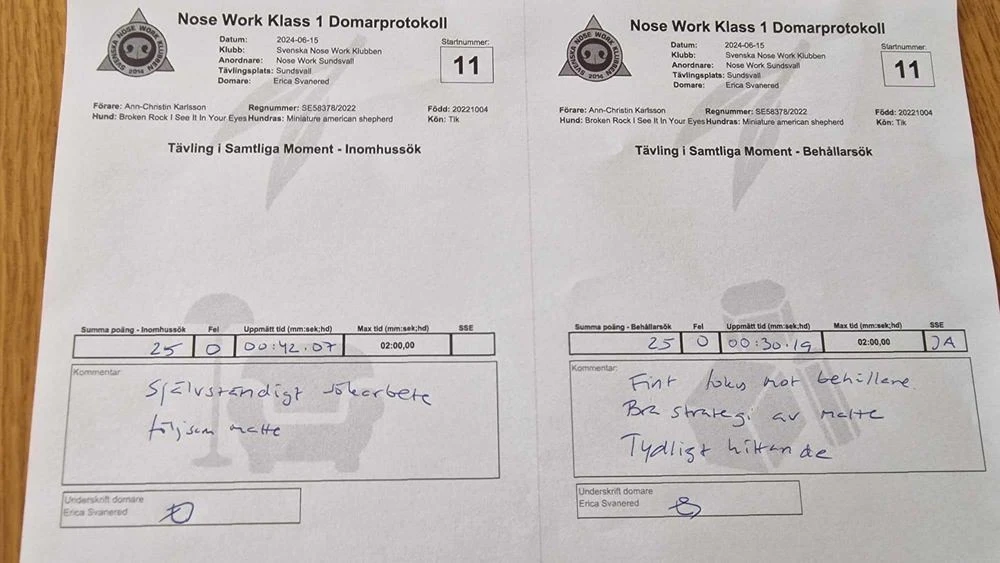 Nose Work Klass 1 Domarprotokoll
SVENSKA NOSE WORK KLUBBEN
2014
Datum: 2024-06-15
Klubb: Svenska Nose Work Klubben
Anordnare: Nose Work Sundsvall
Tävlingsplats: Sundsvall
Domare: Erica Svanered
Startnummer:
11
Förare: Ann-Christin Karlsson Regnummer: SE58378/2022 Född: 20221004
Hund: Broken Rock I See It In Your Eyes Hundras: Miniature american shepherd Kön: Tik
Tävling i Samtliga Moment - Inomhussök
Summa poäng - Inomhussök Fel Uppmätt tid (mm:sek;hd) Max tid (mm:sek;hd) SSE
25 0 00:42.07 02:00,00
Kommentar:
Självständigt sökarbete
följsam matte
Underskrift domare
Erica Svanered
Nose Work Klass 1 Domarprotokoll
SVENSKA NOSE WORK KLUBBEN
2014
Datum: 2024-06-15
Klubb: Svenska Nose Work Klubben
Anordnare: Nose Work Sundsvall
Tävlingsplats: Sundsvall
Domare: Erica Svanered
Startnummer:
11
Förare: Ann-Christin Karlsson Regnummer: SE58378/2022 Född: 20221004
Hund: Broken Rock I See It In Your Eyes Hundras: Miniature american shepherd Kön: Tik
Tävling i Samtliga Moment - Behållarsök
Summa poäng - Behållarsök Fel Uppmätt tid (mm:sek;hd) Max tid (mm:sek;hd) SSE
25 0 00:30.19 02:00,00 JA
Kommentar:
Fint fokus mot behållare.
Bra strategi av matte
Tydligt hittande
Underskrift domare
Erica Svanered